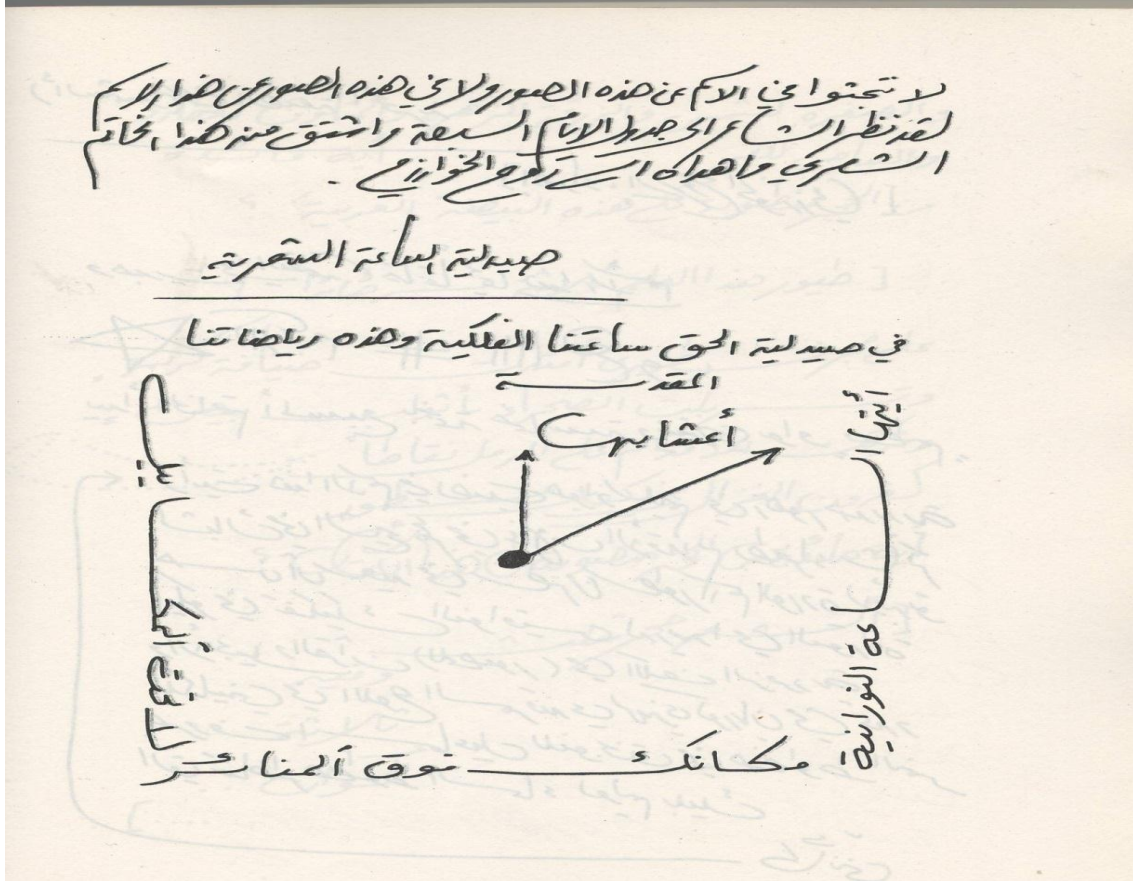 لا تبحثوا في الاسم عن هذه الصور ولا في هذه الصور عن هذا الاسم
لقد نظر الشاعر الى جدول الايام السبعة واشتق منه هذا الخاتم
الشعري واهداه الى روح الخوارزمي .
صيدلية الساعة الشعرية
في صيدلية الحق ساعتنا الفلكية وهذه رياضاتنا
المقدسة
أعشابها
أيتها الساعة النورانية
مكانك فوق المنائر
لا تحت